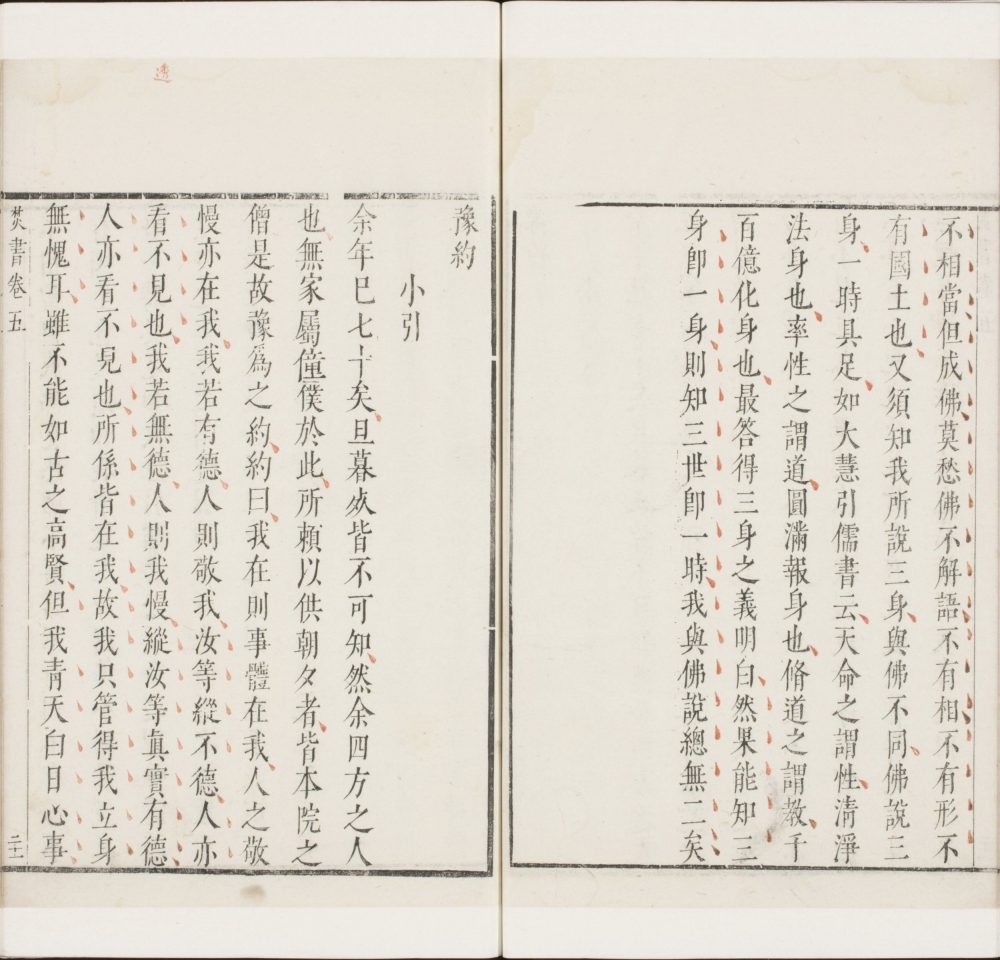 不相當但成佛莫愁佛不解語不有相不有形不
有國土也又須知我所說三身與佛不同佛說三
身一時具足如大慧引儒書云天命之謂性清淨
法身也率性之謂道圓滿報身也脩道之謂教千
百億化身也最答得三身之義明白然果能知三
身即一身則知三世即一時我與佛說總無二矣
豫約
小引
余年已七十矣旦暮欻皆不可知然余四方之人
也無家屬僮僕於此所賴以供朝夕者皆本院之
僧是故豫為之約約曰我在則事體在我人之敬
慢亦在我我若有德人則敬我汝等縱不德人亦
看不見也我若無德人則我慢縱汝等真實有德
人亦看不見也所係皆在我故我只管得我立身
無愧耳雖不能如古之高賢但我青天白日心事
焚書卷五
二十一